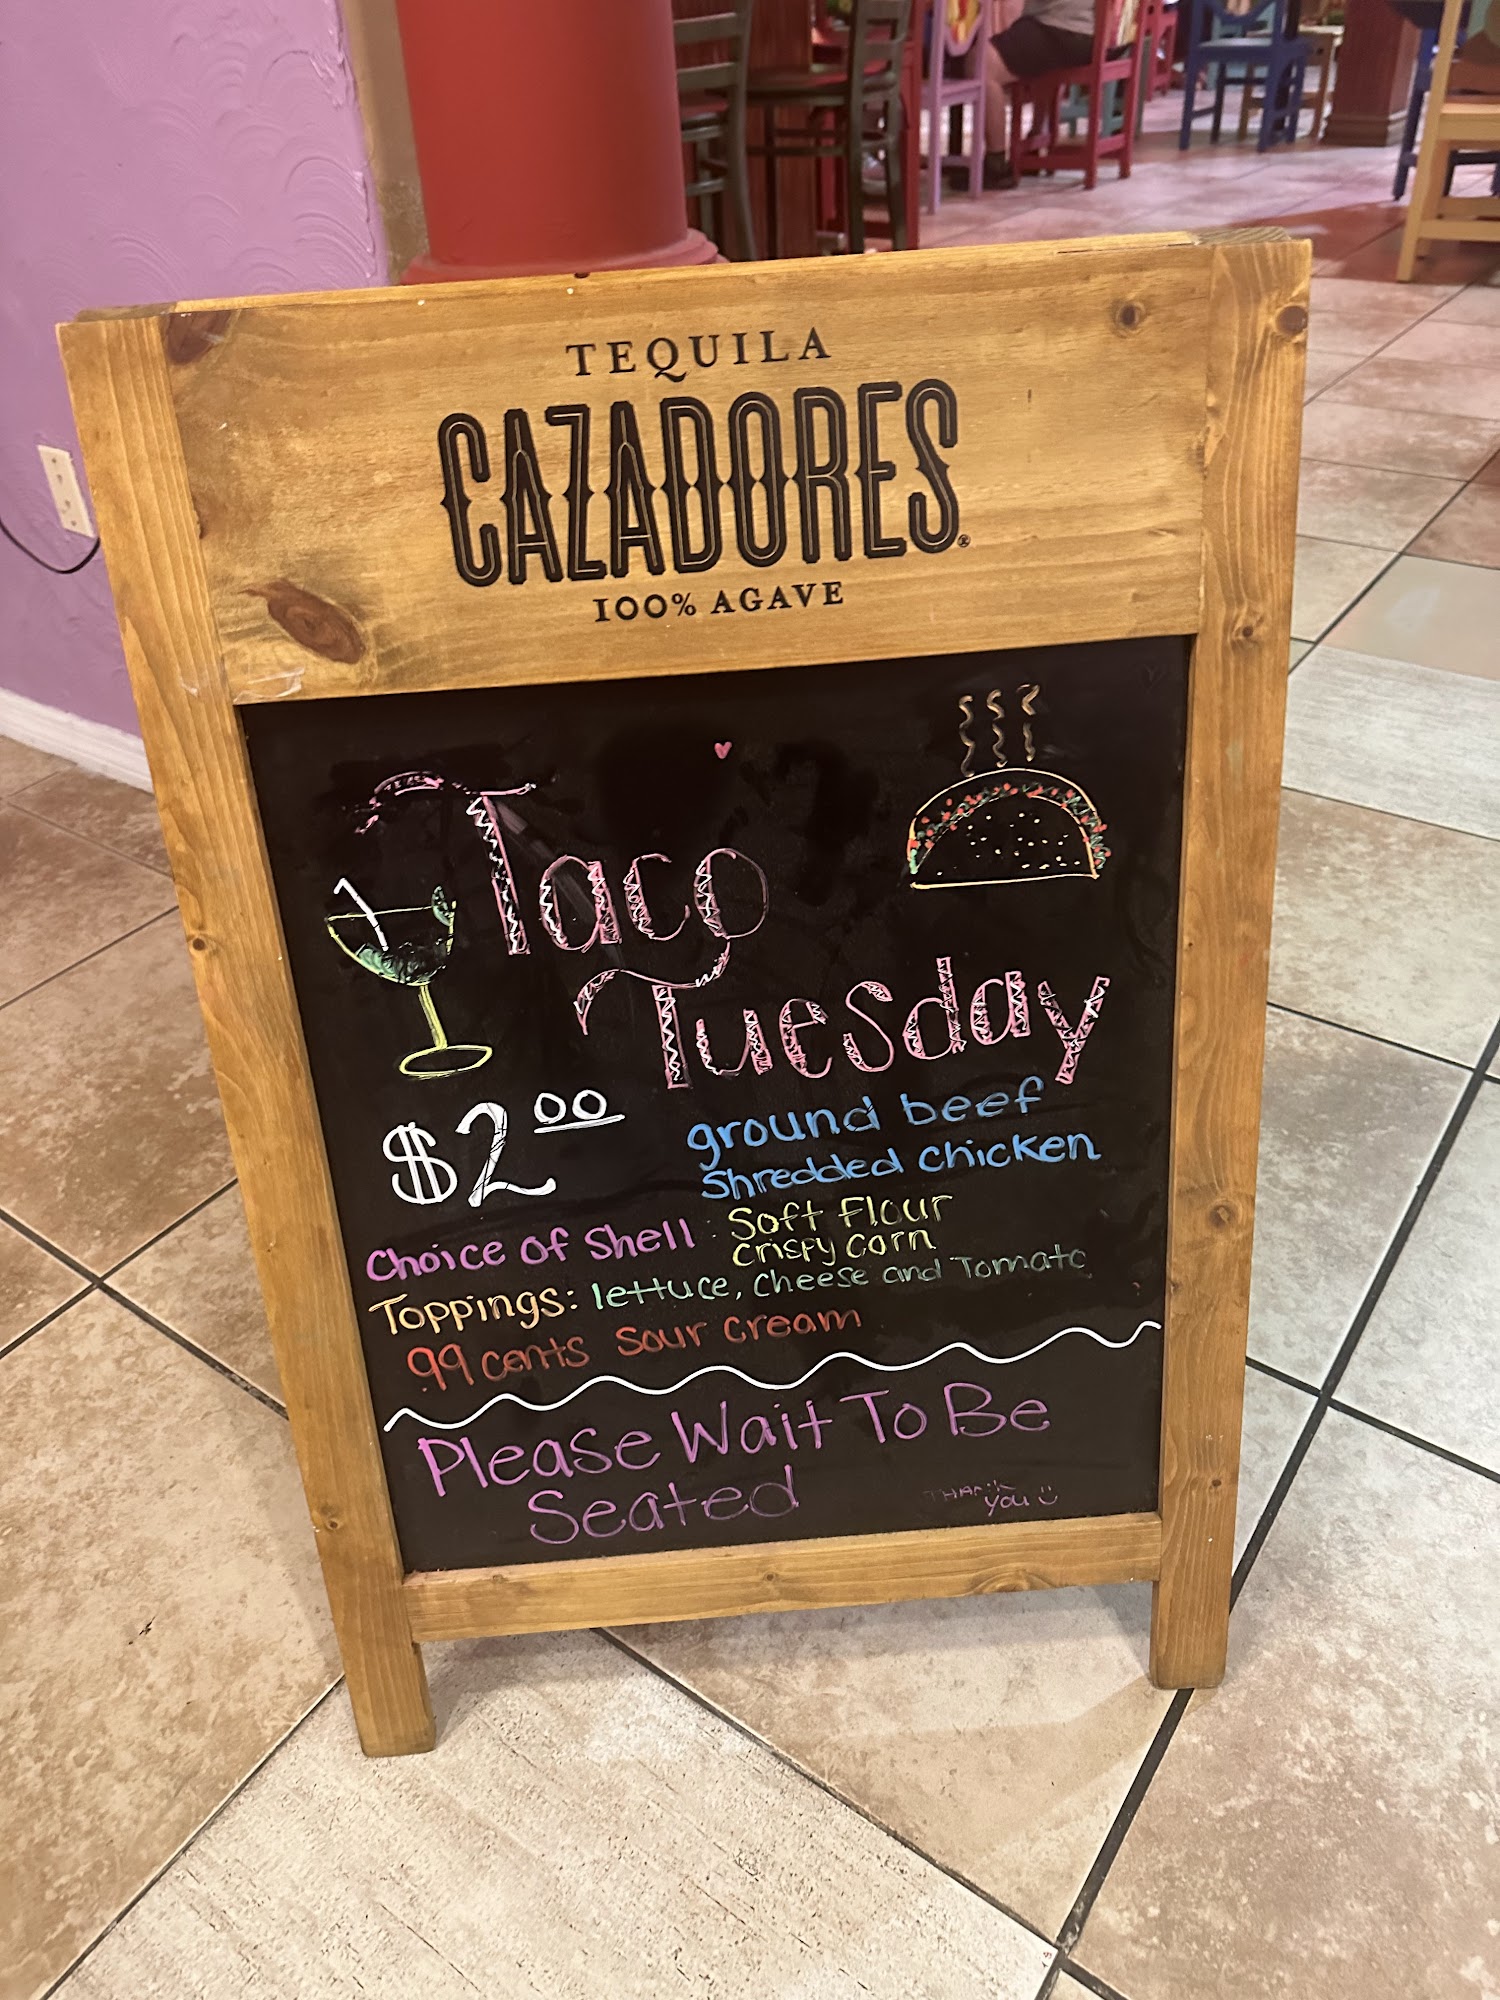 TEQUILA
CAZADORES®
100% AGAVE
Taco
Tuesday
$2.00
ground beef
shredded chicken
Choice of Shell: Soft Flour
Crispy Corn
Toppings: lettuce, cheese and Tomato
99 cents sour cream
Please Wait To Be
Seated
THANK
you